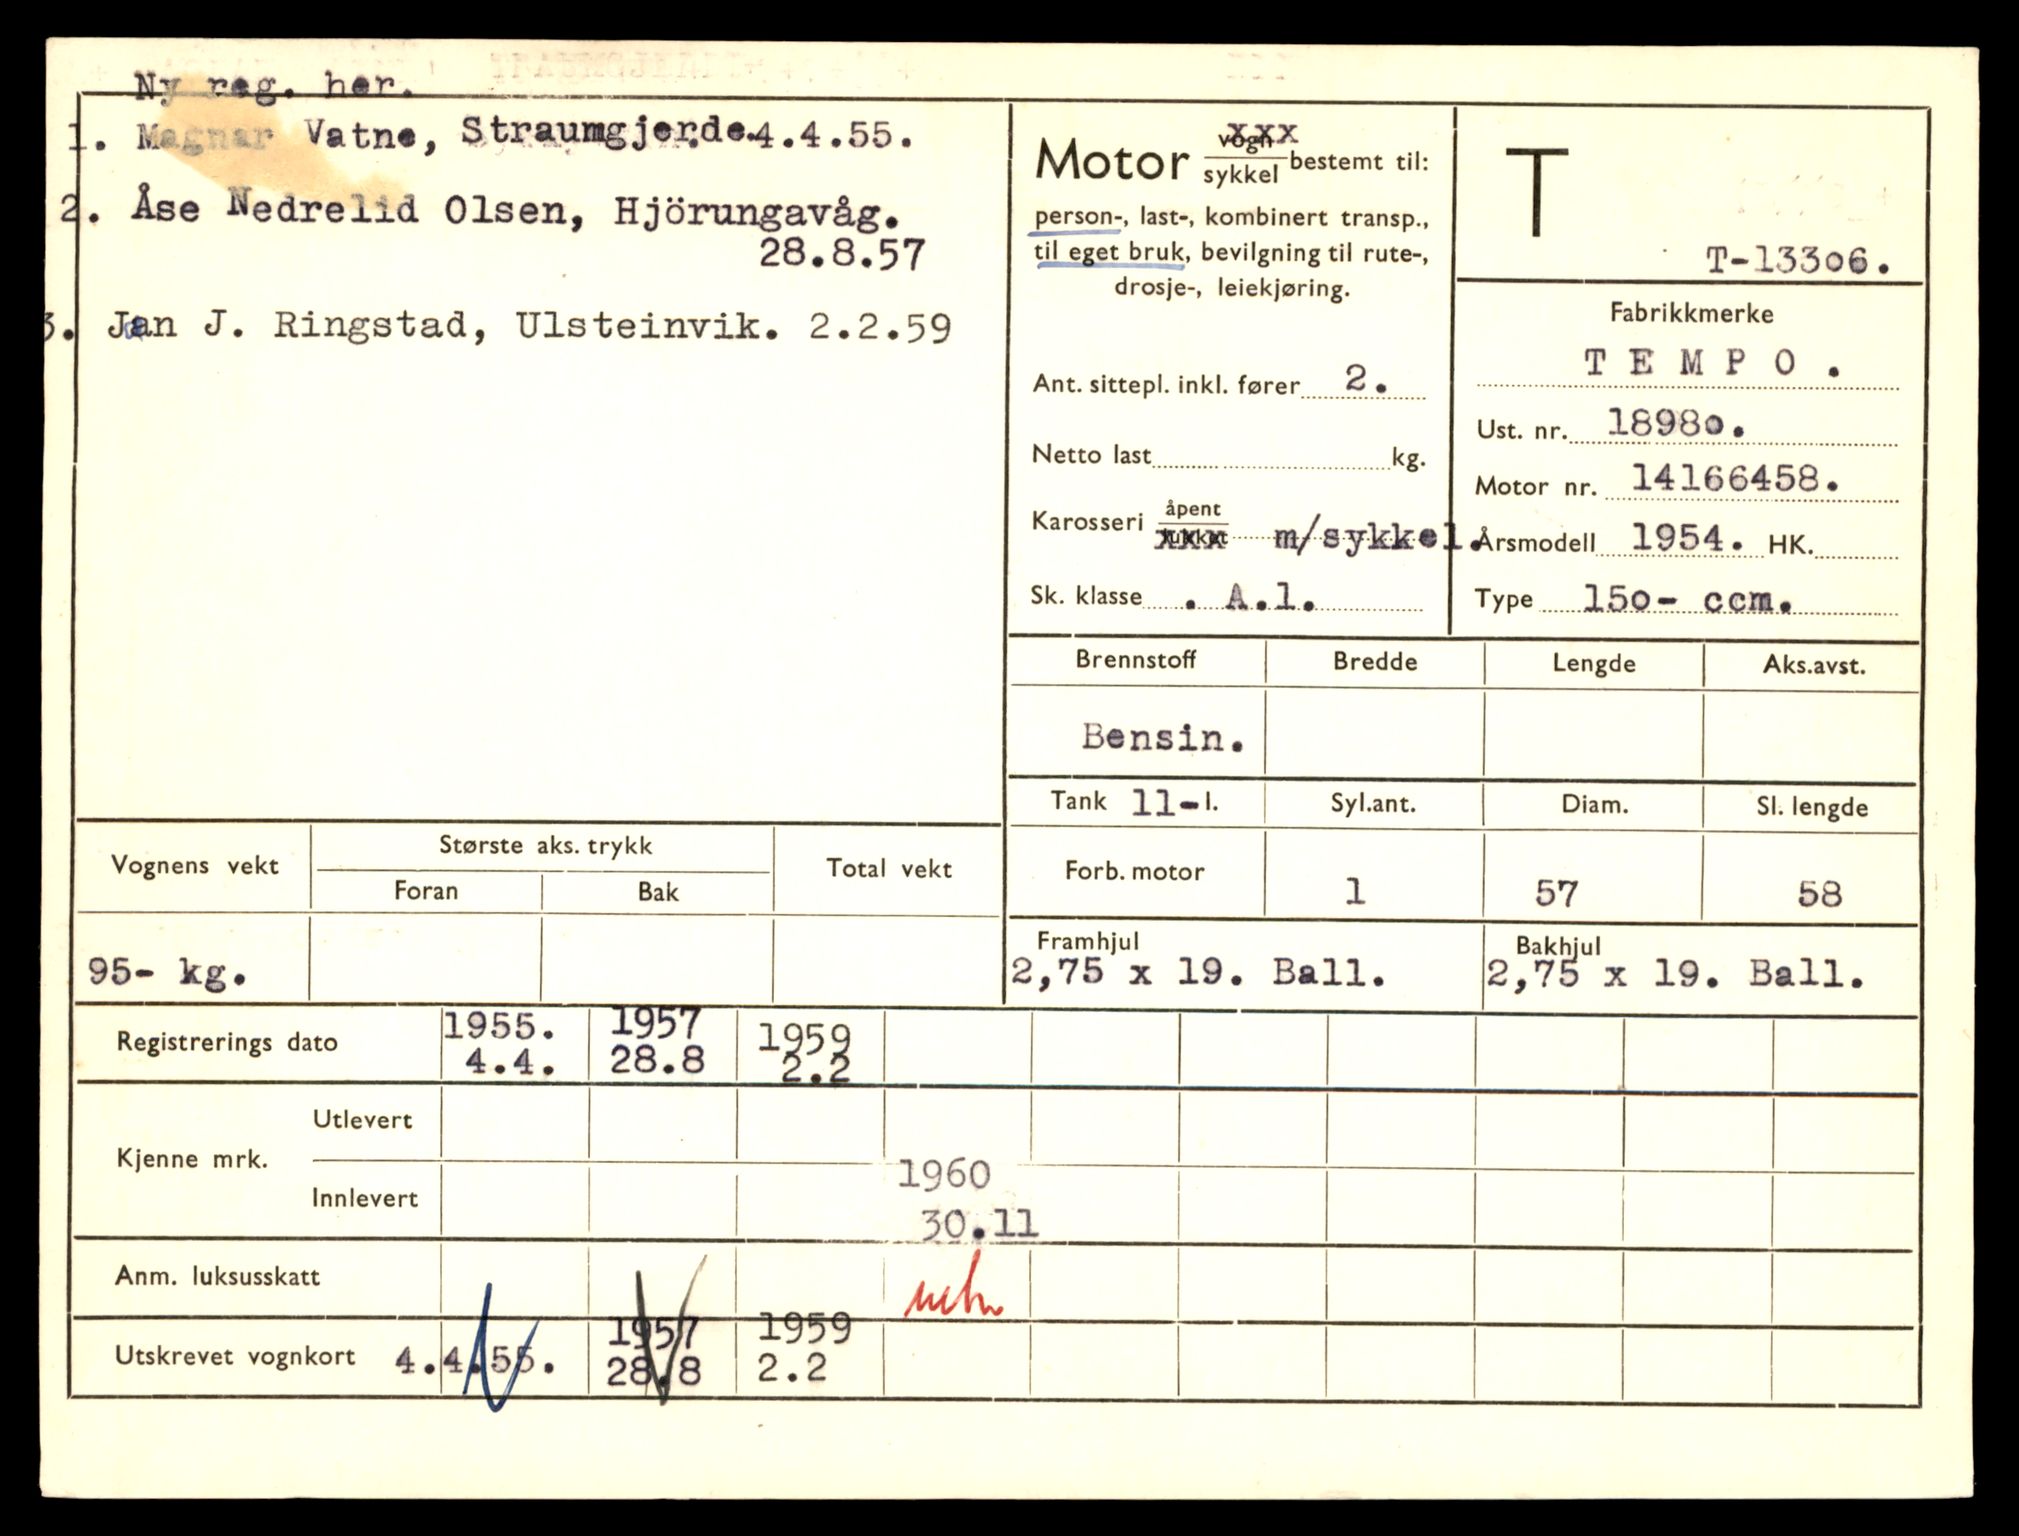 Ny reg. her.
1. Magnar Vatne, Straumgjerde. 4.4.55.
2. Åse Nedrelid Olsen, Hjörungavåg.
28.8.57
3. Jan J. Ringstad, Ulsteinvik. 2.2.59
Motor vogn xxx
sykkel bestemt til:
person-, last-, kombinert transp.,
til eget bruk, bevilgning til rute-,
drosje-, leiekjøring.
Ant. sittepl. inkl. fører 2.
Netto last kg.
Karosseri åpent
lukket xxx m/sykkel.
Sk. klasse . A.1.
T
T-13306.
Fabrikkmerke
T E M P O .
Ust. nr. 18980.
Motor nr. 14166458.
Årsmodell 1954. HK.
Type 150- ccm.
Brennstoff Bredde Lengde Aks.avst.
Bensin.
Tank 11- l. Syl.ant. Diam. Sl. lengde
Forb. motor 1 57 58
Framhjul Bakhjul
2,75 x 19. Ball. 2,75 x 19. Ball.
Vognens vekt Største aks. trykk Total vekt
Foran Bak
95- kg.
Registrerings dato 1955. 1957 1959
4.4. 28.8 2.2
Kjenne mrk. Utlevert
Innlevert 1960
30.11
Anm. luksusskatt
Utskrevet vognkort 4.4.55. 1957 1959
28.8 2.2